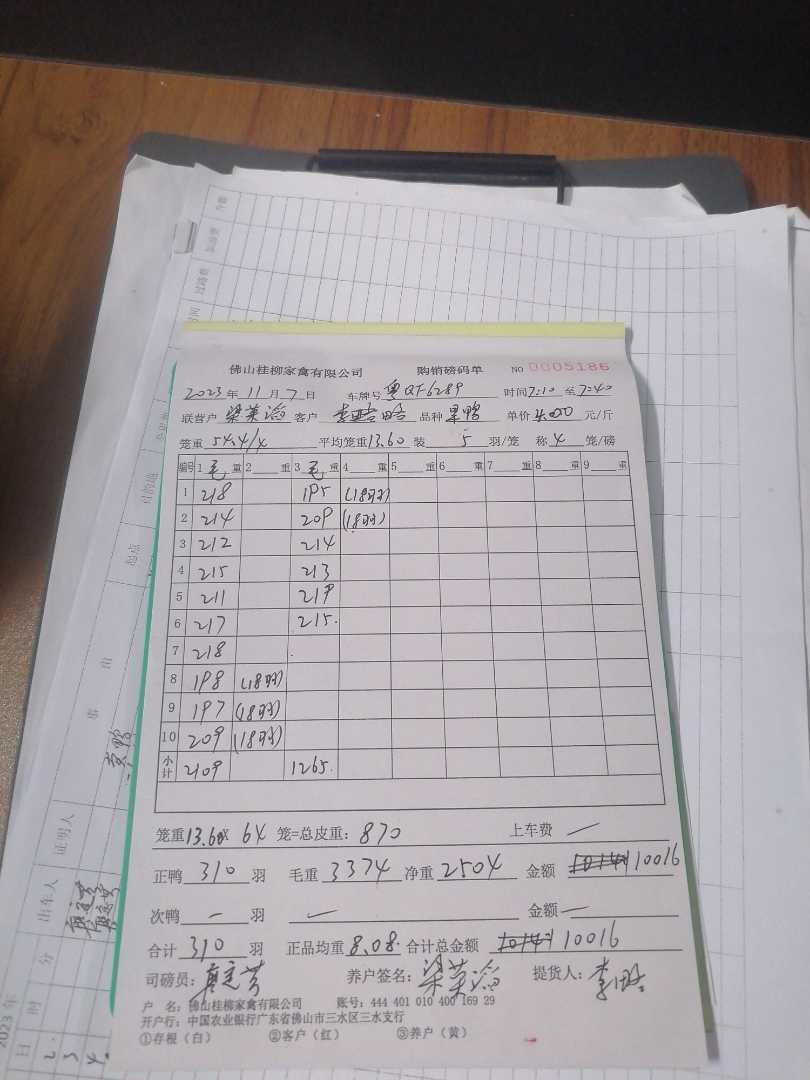 佛山桂柳家禽有限公司 购销磅码单 NO 0005186
2023年11月7日 车牌号 粤QT6289 时间7:10至7:40
联营户 梁英滔 客户 品种 单价 4.00 元/斤
笼重 54.4/4 平均笼重13.60 装 5 羽/笼 称 4 笼/磅
编号 1 毛 重 2 重 3 毛 重 4 重 5 重 6 重 7 重 8 重 9 重
1 218 195 (18羽)
2 214 209 (18羽)
3 212 214
4 215 213
5 211 219
6 217 215.
7 218
8 198 (18羽)
9 197 (18羽)
10 209 (18羽)
小计 2109 1265.
笼重13.60X 64 笼=总皮重: 870 上车费
正鸭 310 羽 毛重 3374 净重 2504 金额 10016
次鸭 — 羽 金额 —
合计 310 羽 正品均重 8.08 合计总金额 10016
司磅员: 养户签名: 梁英滔 提货人:
户 名: 佛山桂柳家禽有限公司 账号: 444 401 010 400 169 29
开户行: 中国农业银行广东省佛山市三水区三水支行
①存根（白） ②客户（红） ③养户（黄）
过路费
起点
事由
证明人
出车人
2023 年
日 时 分